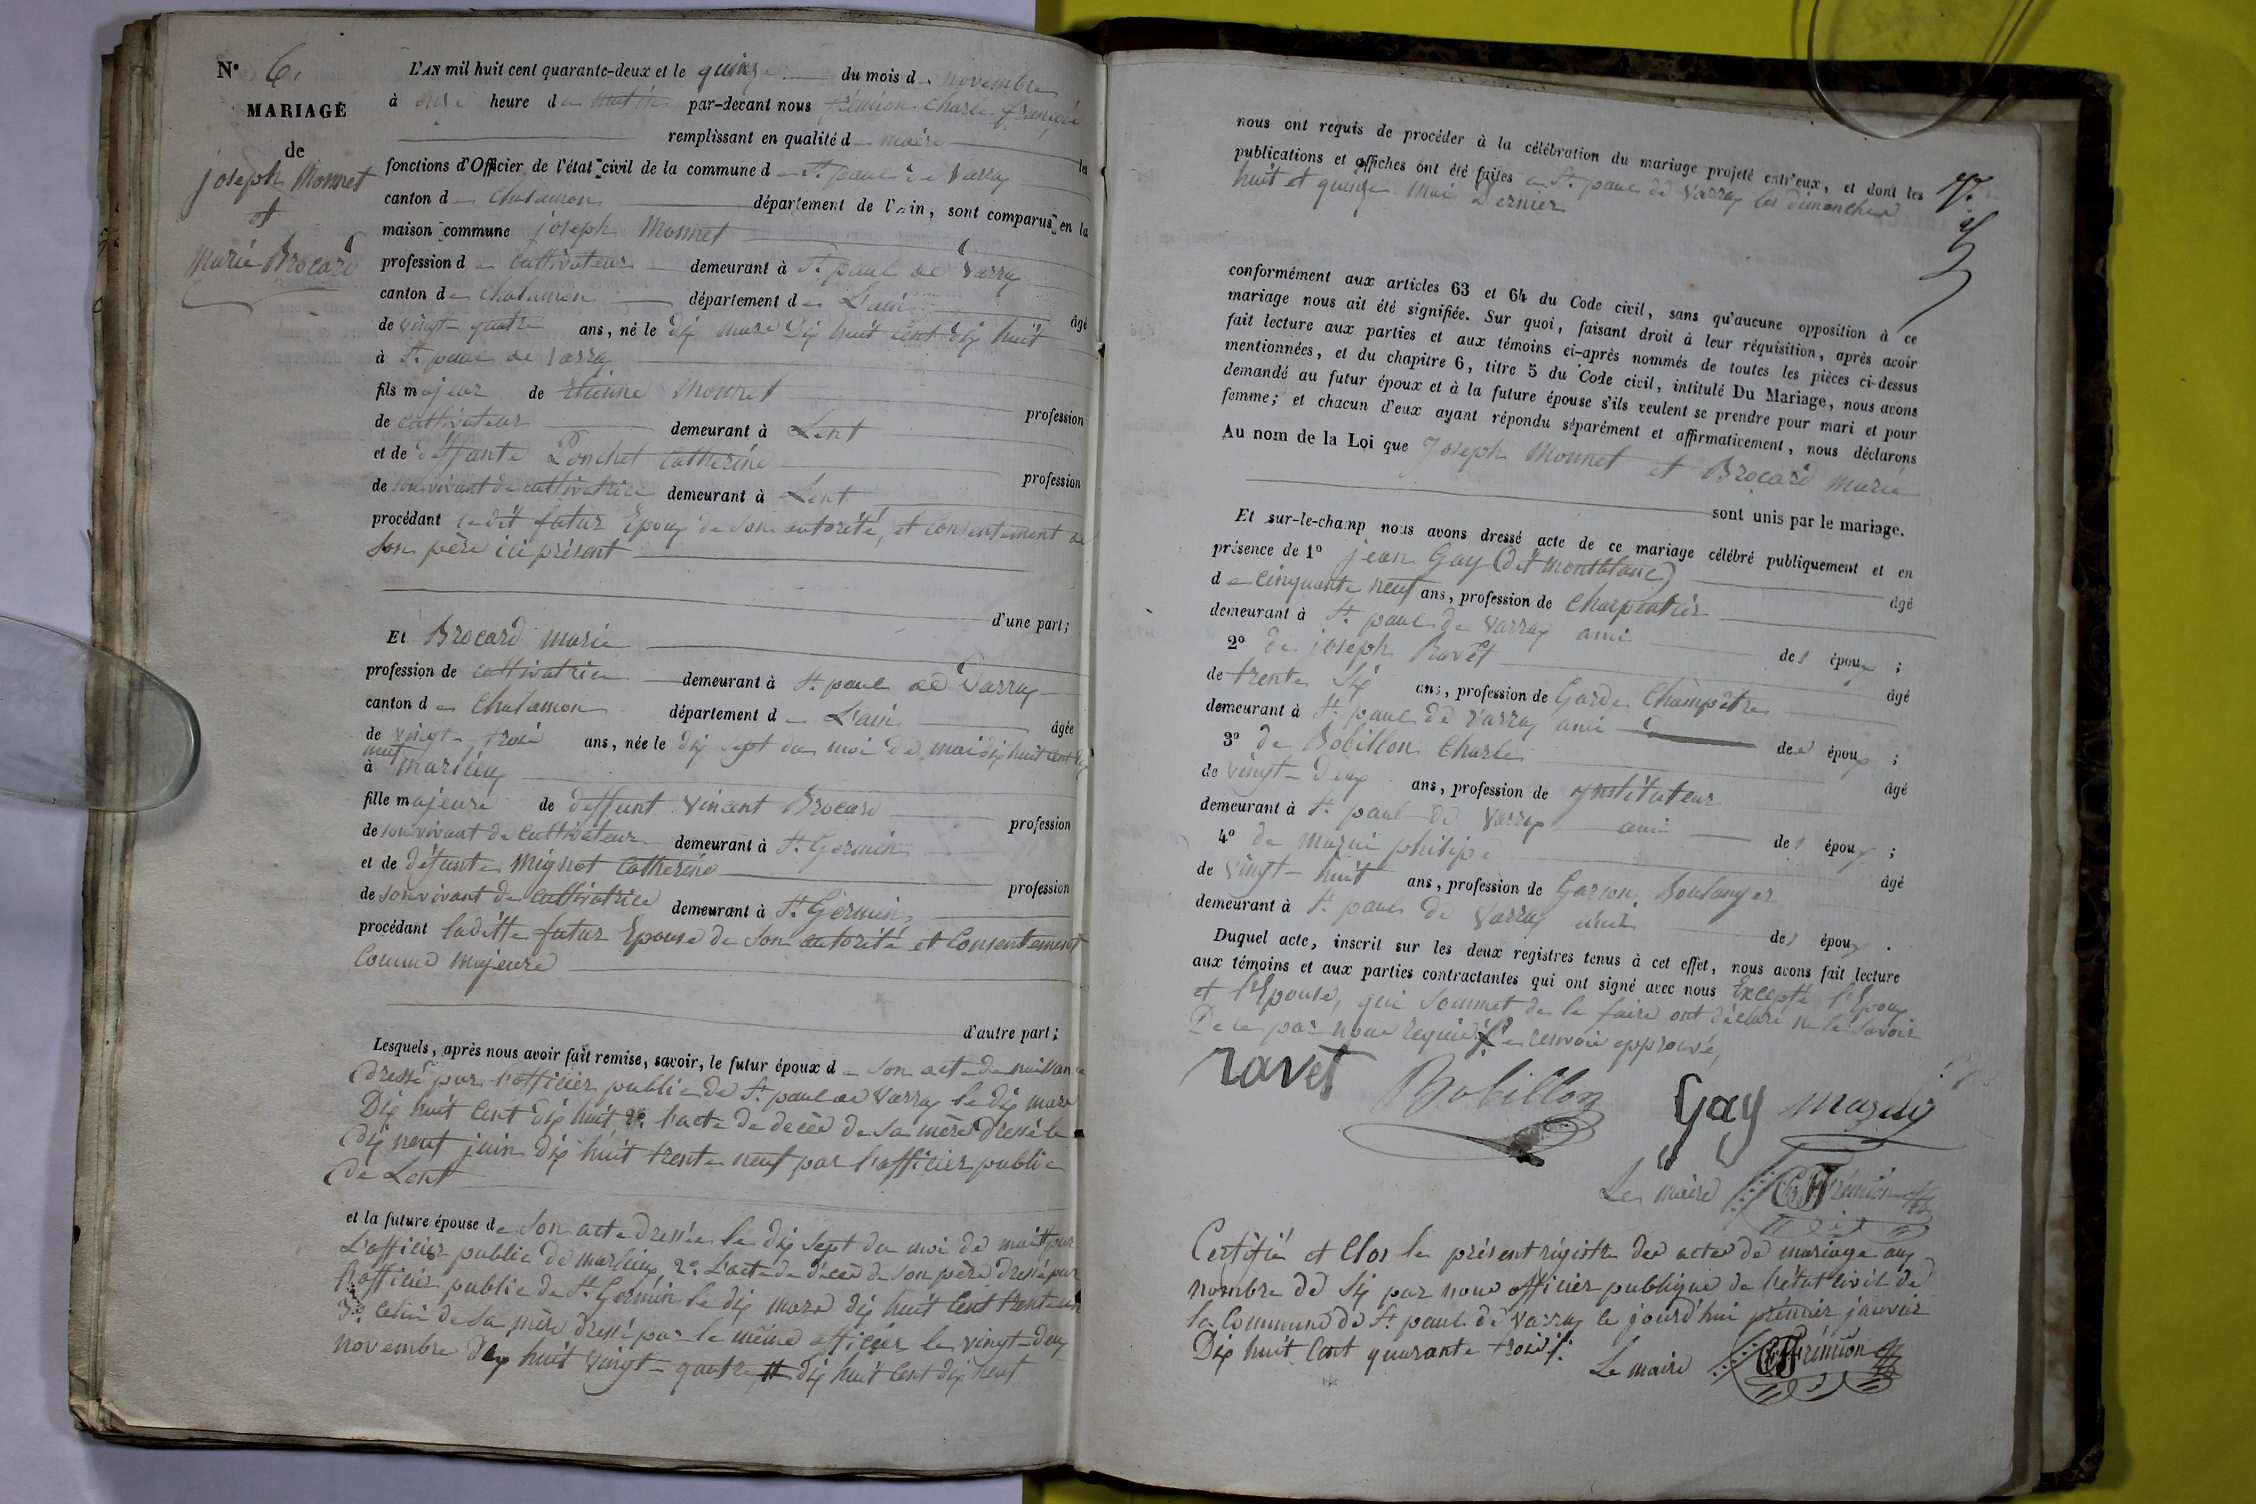 N° 6.
MARIAGE
de
joseph Monnet
et
Marie Brocard
L'AN mil huit cent quarante-deux et le quinze du mois de novembre
à onze heure du matin par-devant nous frémion Charle françois
remplissant en qualité de maire les
fonctions d'Officier de l'état civil de la commune de St. paul de Varray
canton de Chalamon département de l'Ain, sont comparus en la
maison commune joseph Monnet
profession de Cultivateur demeurant à St. paul de Varray
canton de Chalamon département de L'ain âgé
de vingt-quatre ans, né le dix mars dix huit cent dix huit
à St. paul de Varray
fils majeur de etienne Monnet profession
de cultivateur demeurant à Lent
et de déffunte Ponchet Catherine profession
de son vivant de cultivatrice demeurant à Lent
procédant ledit futur Epoux de son autorité, et consentement de
son père ici présent
d'une part;
Et Brocard marie
profession de cultivatrice demeurant à St. paul de Varray
canton de Chalamon département de L'ain âgée
de vingt-trois ans, née le dix sept du moi de mai dix huit cent dix
neuf
à Marlieux
fille majeure de deffunt Vincent Brocard profession
de son vivant de cultivateur demeurant à St. Germin
et de défunte Mignot Catherine profession
de son vivant de cultivatrice demeurant à St. Germin
procédant laditte futur Epouse de son autorité et Consentement
Comme Majeure
d'autre part;
Lesquels, après nous avoir fait remise, savoir, le futur époux de son acte de naissance
dressé par l'officier public de St. paul de Varray le dix mars
Dix huit Cent Dix huit 2° l'acte de décès de sa mère dressé le
dix neuf juin dix huit trente neuf par l'officier public
de Lent
et la future épouse de son acte dressée le dix sept du moi de mai par
L'officier public de marlieux 2° L'acte de décès de son père dressé par
l'officier public de St. Germin le dix mars dix huit Cent trente un
3° Celui de sa mère dressé par le même officier le vingt-deux
novembre dix huit vingt-quatre # dix huit cent dix neuf
nous ont requis de procéder à la célébration du mariage projeté entr'eux, et dont les
publications et affiches ont été faites à St. paul de Varray les dimanches
huit et quinze Mai Dernier
conformément aux articles 63 et 64 du Code civil, sans qu'aucune opposition à ce
mariage nous ait été signifiée. Sur quoi, faisant droit à leur réquisition, après avoir
fait lecture aux parties et aux témoins ci-après nommés de toutes les pièces ci-dessus
mentionnées, et du chapitre 6, titre 5 du Code civil, intitulé Du Mariage, nous avons
demandé au futur époux et à la future épouse s'ils veulent se prendre pour mari et pour
femme; et chacun d'eux ayant répondu séparément et affirmativement, nous déclarons
Au nom de la Loi que Joseph Monnet et Brocard Marie
sont unis par le mariage.
Et sur-le-champ nous avons dressé acte de ce mariage célébré publiquement et en
présence de 1° jean Gay (dit Montblanc) âgé
de cinquante neuf ans, profession de Charpentier
demeurant à St. paul de Varray ami des époux ;
2° de joseph Ravet âgé
de trente six ans, profession de Garde Champêtre
demeurant à St. paul de Varray ami des époux ;
3° de Bobillon Charle âgé
de vingt-deux ans, profession de ynstituteur
demeurant à St. paul de Varray ami des époux ;
4° de philipe âgé
de vingt-huit ans, profession de Garson Boulanger
demeurant à St. paul de Varray ami des époux .
Duquel acte, inscrit sur les deux registres tenus à cet effet, nous avons fait lecture
aux témoins et aux parties contractantes qui ont signé avec nous Excepté l'Epoux
et l'Epouse, qui sommet de le faire ont déclaré ne le savoir
De ce par nous requis. renvoie approuvé,
ravet Bobillon Gay
Le maire Frémion
Certifié et Clos le présent régistre des actes de mariage aux
nombre de Six par nous officier publique de l'état civil de
la Commune de St. paul de Varray le jourd'hui prémier janvier
Dix huit Cent quarante trois.
Le maire Frémion